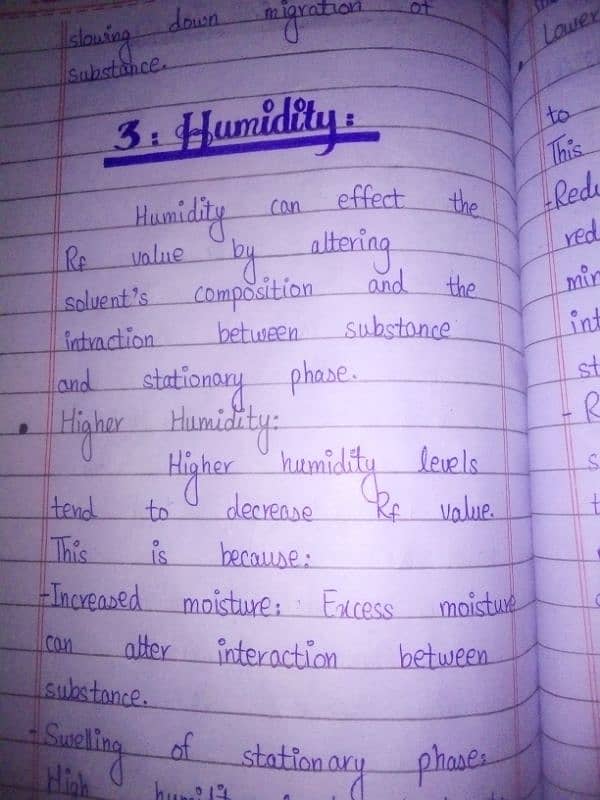 slowing down migration of
substance.
3: Humidity:
Humidity can effect the
Rf value by altering
solvent's composition and the
intraction between substance
and stationary phase.
• Higher Humidity:
Higher humidity levels
tend to decrease Rf value.
This is because:
-Increased moisture: Excess moisture
can alter interaction between
substance.
- Swelling of stationary phase:
High
Lower
to
This